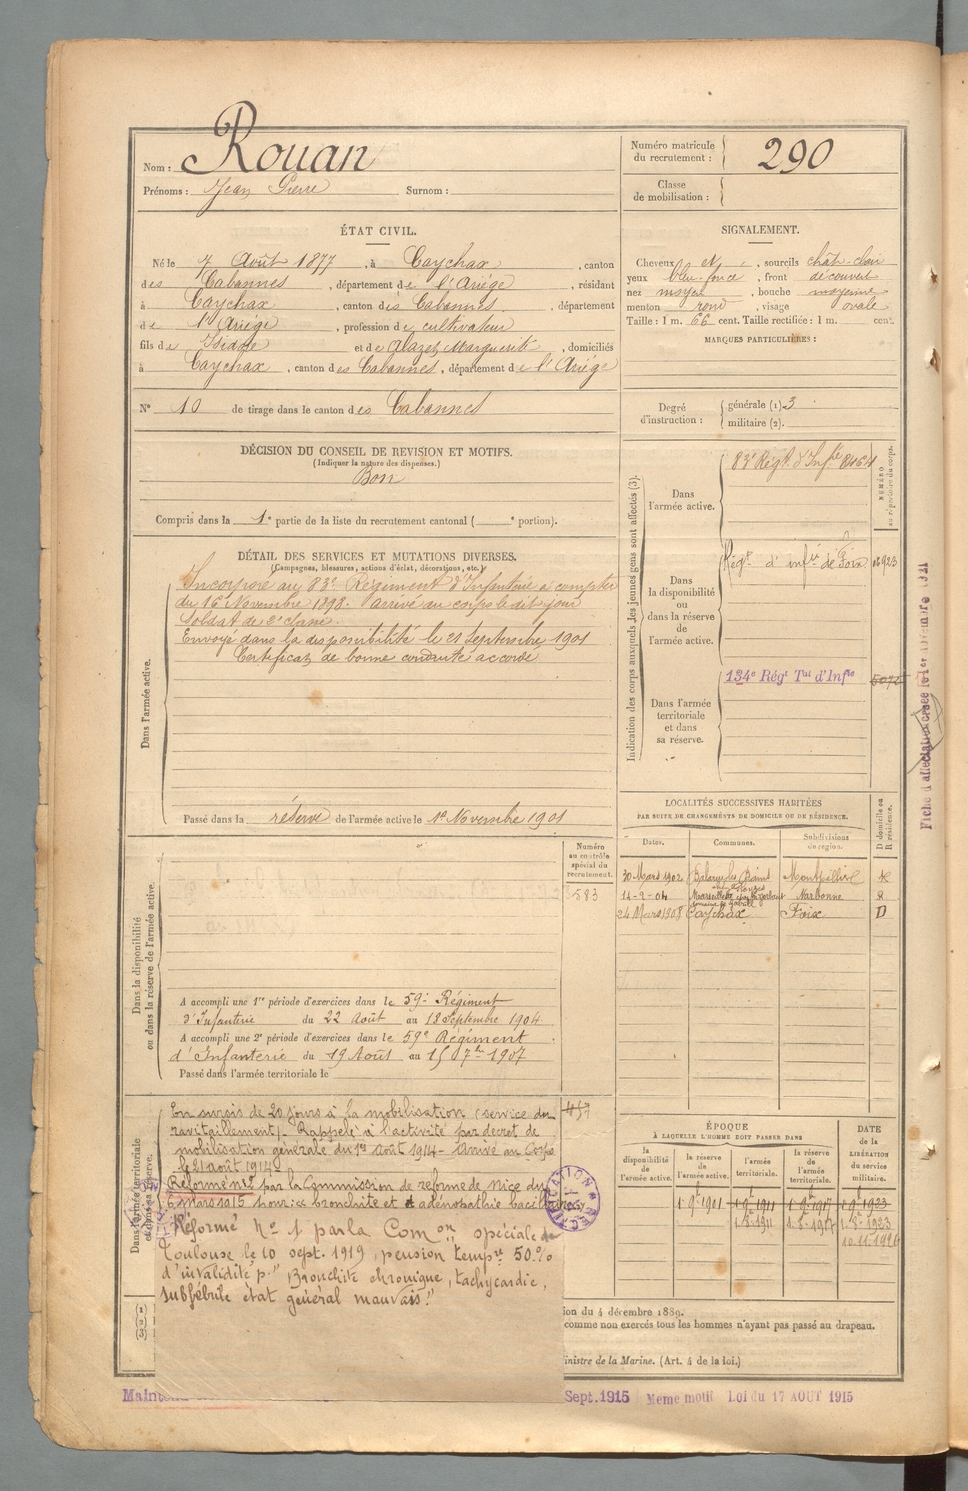 Nom : Rouan
Prénoms : Jean Pierre Surnom :
Numéro matricule du recrutement : 290
Classe de mobilisation :
ÉTAT CIVIL.
Né le 7 Août 1877, à Caychax, canton
des Cabannes, département de l'Ariége, résidant
à Caychax, canton des Cabannes, département
de l'Ariége, profession de cultivateur
fils de Isidore et de Alazet Marguerite, domiciliés
à Caychax, canton des Cabannes, département de l'Ariége
N° 10 de tirage dans le canton des Cabannes
SIGNALEMENT.
Cheveux et, sourcils chât-clair
yeux bleu-foncé, front découvert
nez moyen, bouche moyenne
menton rond, visage ovale
Taille : 1 m. 66 cent. Taille rectifiée : 1 m. cent.
MARQUES PARTICULIÈRES :
Degré d'instruction : générale (1) 3
militaire (2).
DÉCISION DU CONSEIL DE REVISION ET MOTIFS.
(Indiquer la nature des dispenses.)
Bon
Compris dans la 1e partie de la liste du recrutement cantonal ( e portion).
DÉTAIL DES SERVICES ET MUTATIONS DIVERSES.
(Campagnes, blessures, actions d'éclat, décorations, etc.)
Dans l'armée active.
Incorporé au 83e Régiment d'Infanterie à compter
du 16 Novembre 1898. Arrivé au corps le dit jour
Soldat de 2e classe.
Envoyé dans la disponibilité le 21 Septembre 1901
Certificat de bonne conduite accordé
Passé dans la réserve de l'armée active le 1er Novembre 1901
Indication des corps auxquels les jeunes gens sont affectés (3).
NUMÉRO au répertoire du corps.
Dans l'armée active.
83e Régt. d'Infie 8464
Dans la disponibilité ou dans la réserve de l'armée active.
Régt. d'infie de Foix
Dans l'armée territoriale et dans sa réserve.
134e Régt Tal d'Infie 5075
Fiche d'affectation
LOCALITÉS SUCCESSIVES HABITÉES
PAR SUITE DE CHANGEMENTS DE DOMICILE OU DE RÉSIDENCE.
Dates. Communes. Subdivisions de région. D domicile ou R résidence.
30 Mars 1902 Balaruc les Bains Montpellier R
14-2-04 Narbonne R
24 Mars 1908 Caychax Foix D
Dans la disponibilité ou dans la réserve de l'armée active.
Numéro au contrôle spécial du recrutement.
583
A accompli une 1re période d'exercices dans le 59e Régiment
d'Infanterie du 22 Août au 18 Septembre 1904.
A accompli une 2e période d'exercices dans le 59e Régiment
d'Infanterie du 19 Août au 15 7bre 1907
Passé dans l'armée territoriale le
Dans l'armée territoriale et dans sa réserve.
En sursis de 20 jours à la mobilisation (service du
ravitaillement). Rappelé à l'activité par décret de
mobilisation générale du 1er Août 1914 - Arrivé au Corps
le 21 août 1914
Réformé n°2 par la Commission de réforme de Nice du
6 mars 1915 pour bronchite et adénopathie bacillaires
Réformé No 1 par la Comon spéciale de
Toulouse le 10 sept. 1919, pension tempre 50%
d'invalidité pr "Bronchite chronique, tachycardie,
subfébrile état général mauvais."
RECTIFICATION
ÉPOQUE
À LAQUELLE L'HOMME DOIT PASSER DANS
la disponibilité de l'armée active. la réserve de l'armée active. l'armée territoriale. la réserve de l'armée territoriale.
DATE de la LIBÉRATION du service militaire.
1 9e 1901 1 9e 1911 1 9e 1917 1 9e 1923
10.11.1926
ion du 4 décembre 1889.
comme non exercés tous les hommes n'ayant pas passé au drapeau.
inistre de la Marine. (Art. 4 de la loi.)
Sept. 1915 Même motif Loi du 17 AOUT 1915